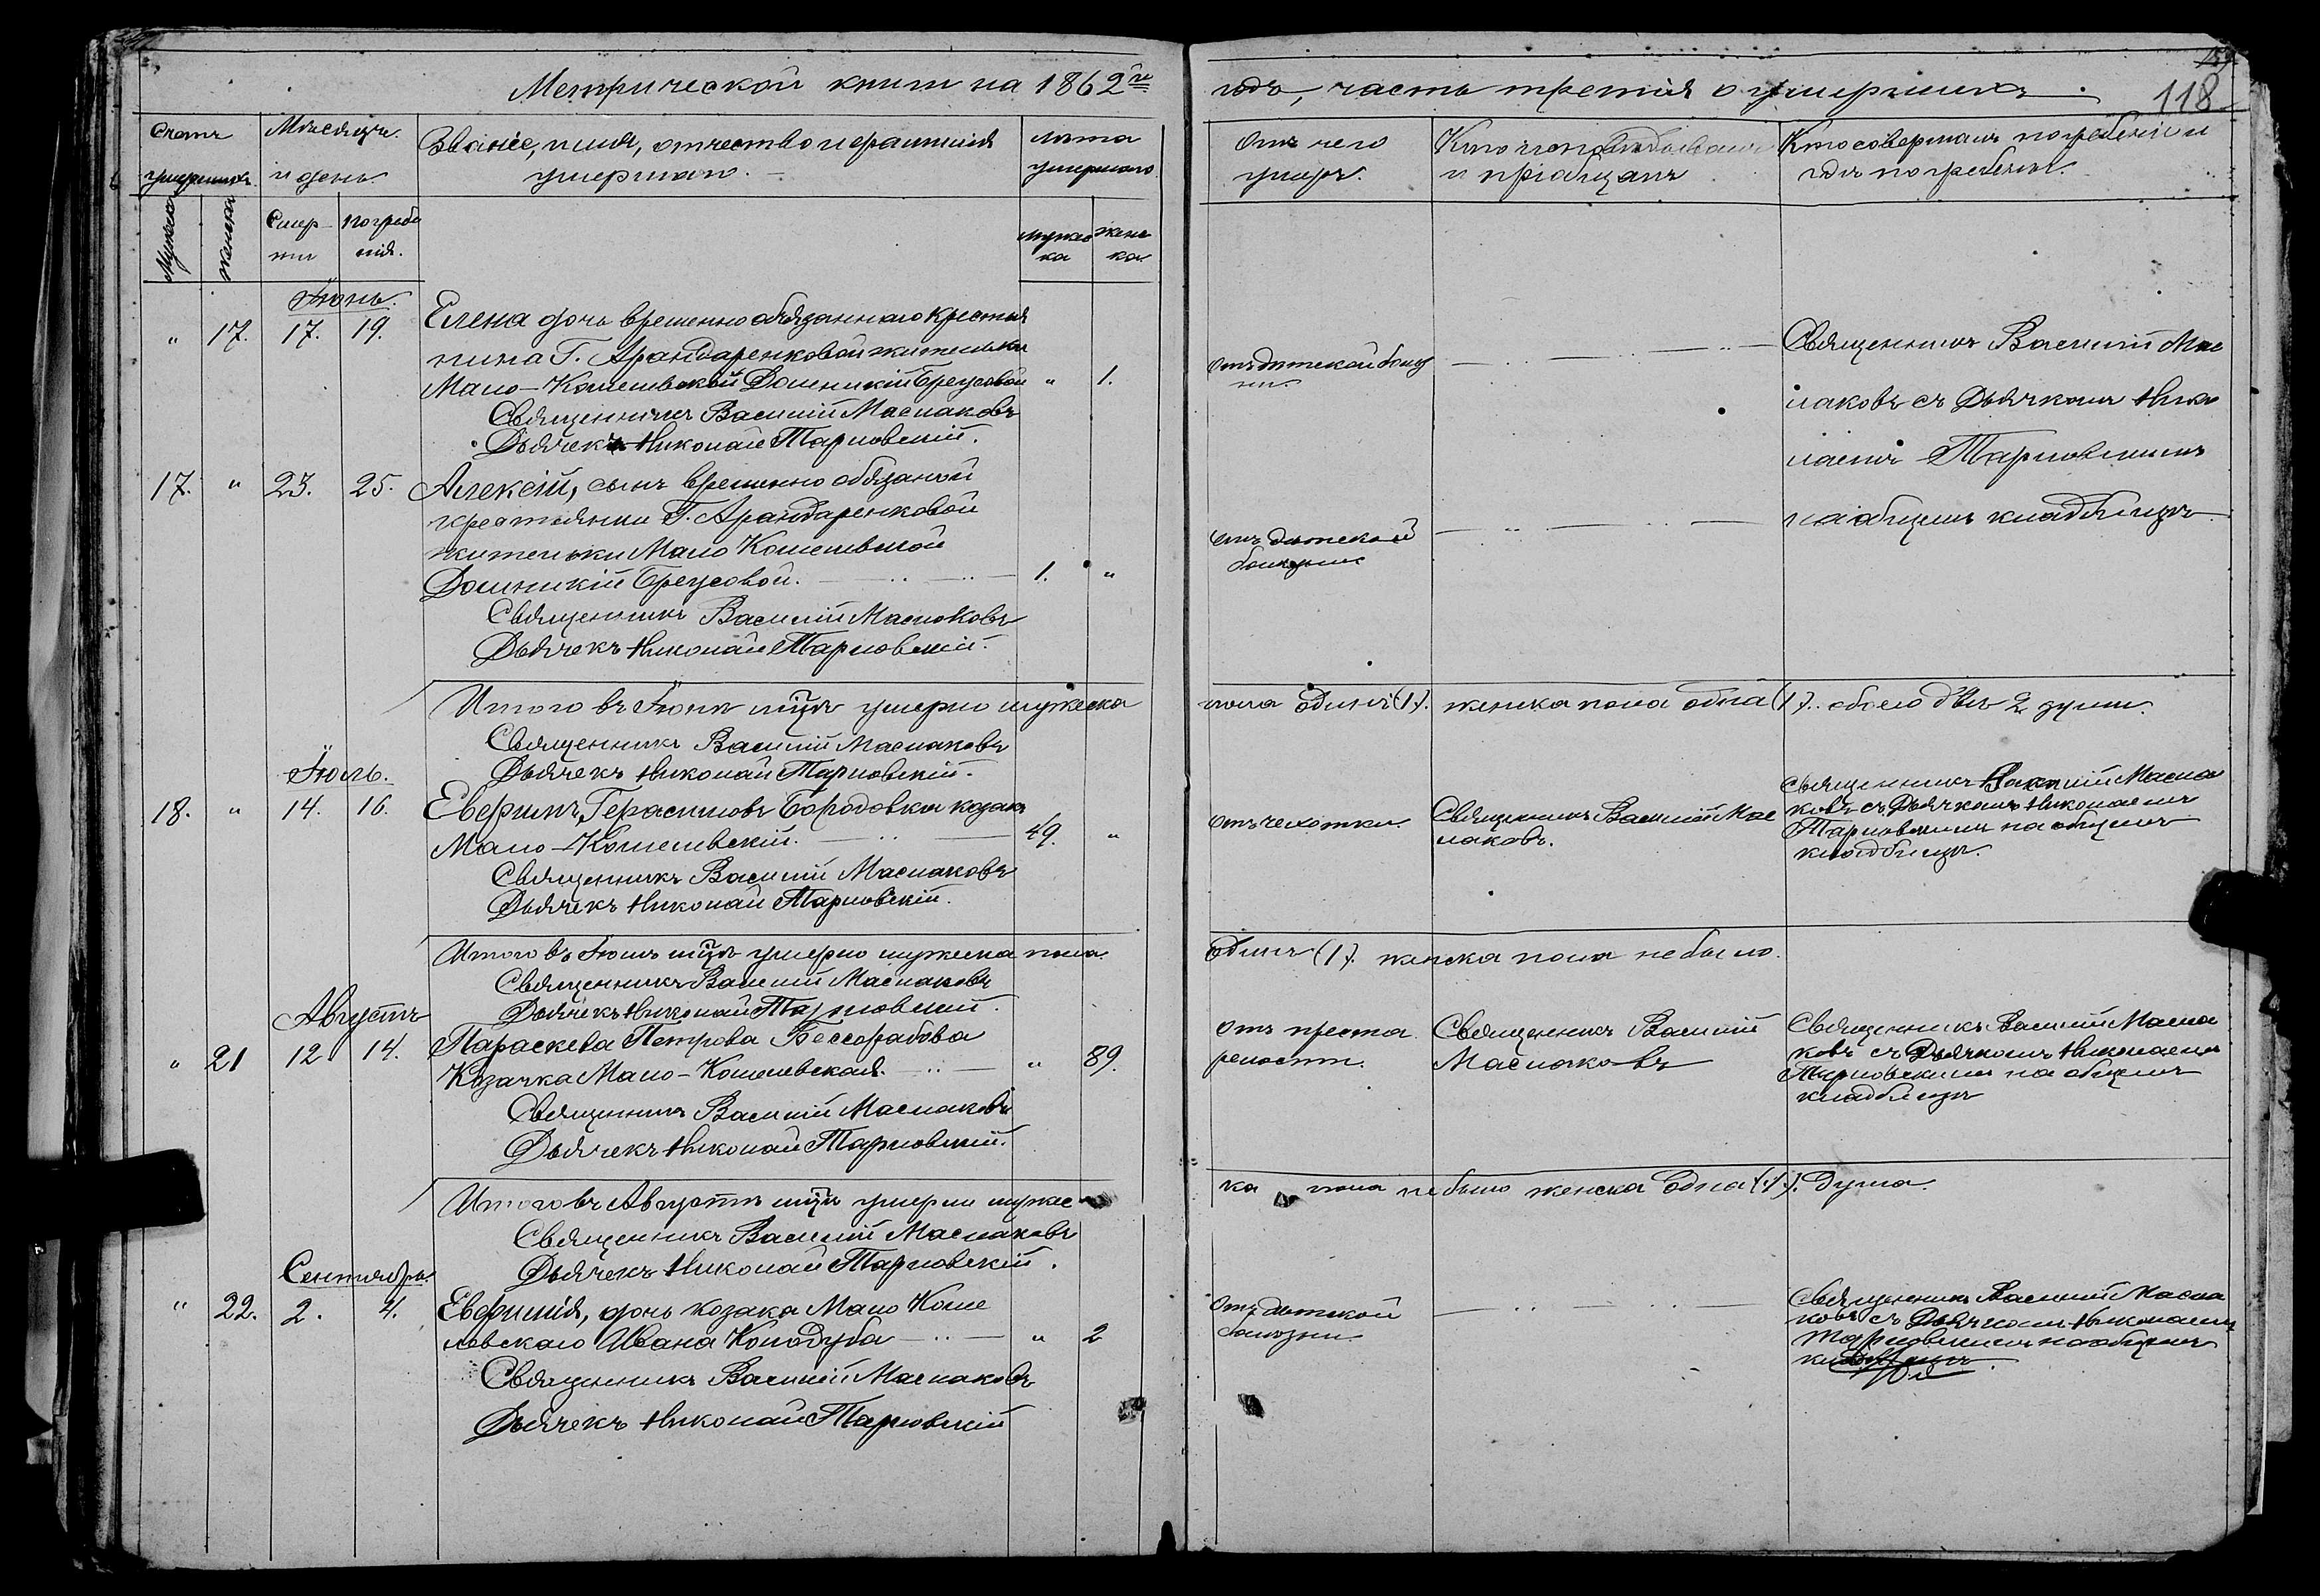 Метрической книги на 1862й
годъ, часть третія о умершихъ.
118
Счетъ умершихъ.
Мѣсяцъ и день.
Званіе, имя, отчество и фамилія
умершаго.
Лѣта
умершаго.
Мужеска
женска
Смер-
ти
погребе
нія.
мужес
ка
женс
ка.
Отъ чего
умеръ.
Кто исповѣдывалъ
и пріобщалъ
Кто совершалъ погребеніе и
гдѣ погребенъ.
Іюнь.
" 17. 17. 19.
Елена дочь временно обязаннаго крестья
нина Г. Арандаренковой жительки
Мало-Кошелевской Домникіи Бреусовой " 1.
Священникъ Василий Маслаковъ
Дьячекъ Николай Тарновскій.
отъ дѣтской болѣз
ни.
Священникъ Василій Мас
лаковъ съ Дьячкомъ Нико
лаемъ Тарновскимъ
на общемъ кладбищѣ
17. " 23. 25.
Алексій, сынъ временно обязаной
крестьянки Г. Арандаренковой
жительки Мало Кошелевской
Домникіи Бреусовой. 1. "
Священникъ Василий Маслаковъ
Дьячекъ Николай Тарновскій.
отъ дѣтской
болѣзни
Итого въ Іюнѣ мцѣ умерло мужеска
пола одинъ (1). женска пола одна (1). обоего двѣ 2 души.
Священникъ Василий Маслаковъ
Дьячекъ Николай Тарновскій.
Іюль.
18. " 14. 16.
Евфимъ Герасимовъ Бородовка козакъ
Мало-Кошелевскій. 49. "
Священникъ Василий Маслаковъ
Дьячекъ Николай Тарновскій.
отъ чехотки.
Священникъ Василий Мас
лаковъ.
Священникъ Василий Масла
ковъ съ Дьячкомъ Николаемъ
Тарновскимъ на общемъ
кладбищѣ.
Итого въ Іюлѣ мцѣ умерло мужеска пола
одинъ (1). женска пола не было.
Священникъ Василий Маслаковъ
Дьячекъ Николай Тарновскій.
Августъ
" 21 12 14.
Параскева Петрова Бессорабова
Козачка Мало-Кошелевская. " 89.
Священникъ Василий Маслаковъ
Дьячекъ Николай Тарновскій.
отъ преста
релости.
Священникъ Василий
Маслаковъ
Священникъ Василий Масла
ковъ съ Дьячкомъ Николаемъ
Тарновскимъ на общемъ
кладбищѣ
Итого въ Августѣ мцѣ умерли мужес
ка пола не было женска одна (1). душа.
Священникъ Василий Маслаковъ
Дьячекъ Николай Тарновскій.
Сентябрь.
" 22. 2. 4.
Евфимія, дочь козака Мало Коше
левскаго Ивана Колодуба " 2
Священникъ Василий Маслаковъ
Дьячекъ Николай Тарновскій
Отъ дѣтской
болѣзни
Священникъ Василий Масла
ковъ съ Дьячкомъ Николаемъ
Тарновскимъ на общемъ
кладбищѣ.